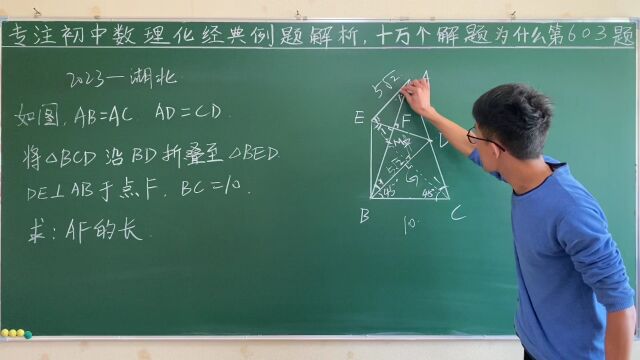 专注初中数理化经典例题解析,十万个解题为什么第603题
2023—湖北
如图,AB=AC. AD=CD.
将△BCD沿BD折叠至△BED.
DE⊥AB于点F. BC=10.
求:AF的长.
5√2
E
F
B
C
G
45
45°
10